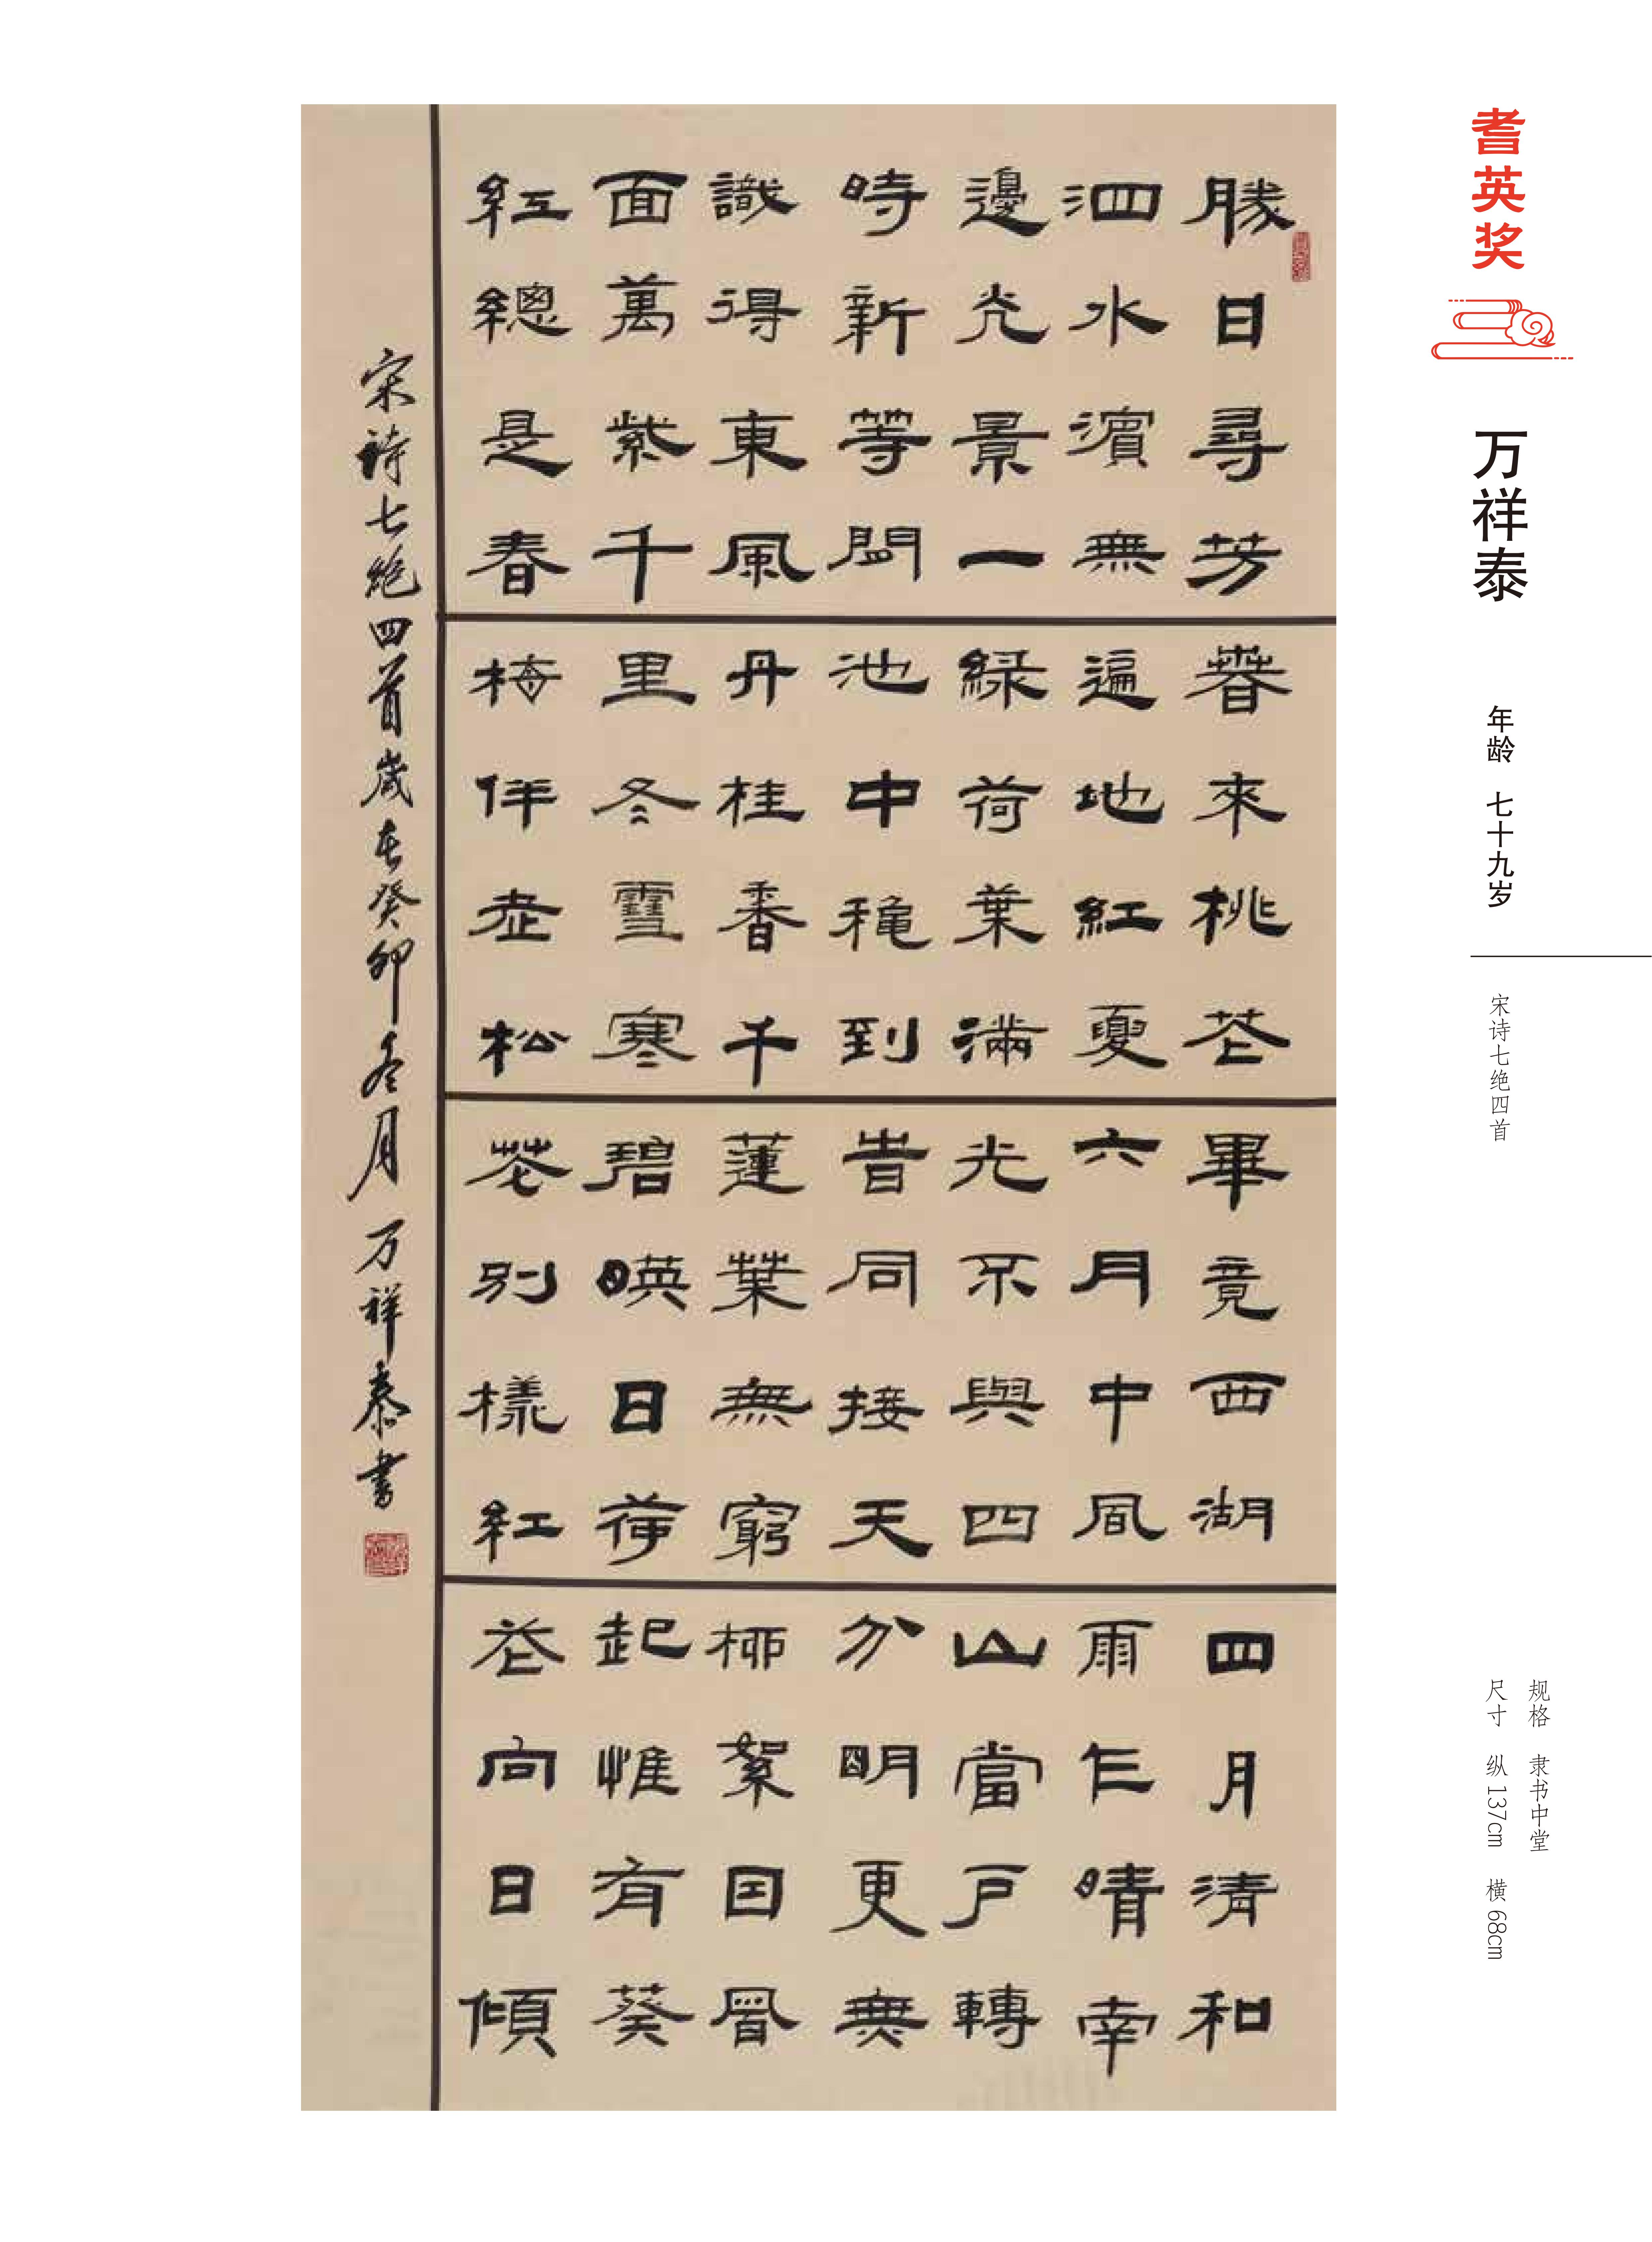 耆英奖
万祥泰
年龄 七十九岁
宋诗七绝四首
规格 隶书中堂
尺寸 纵137cm 横68cm
勝日尋芳
泗水濱無
邊光景一
時新等閒
識得東風
面萬紫千
紅總是春
春來桃花
遍地紅夏
緑荷葉滿
池中穐到
丹桂香千
里冬雪寒
梅伴老松
畢竟西湖
六月中風
光不與四
旹同接天
蓮葉無窮
碧映日荷
花別樣紅
四月清和
雨乍晴南
山當戶轉
分明更無
柳絮因風
起惟有葵
花向日傾
宋詩七絶四首歲在癸卯冬月万祥泰書